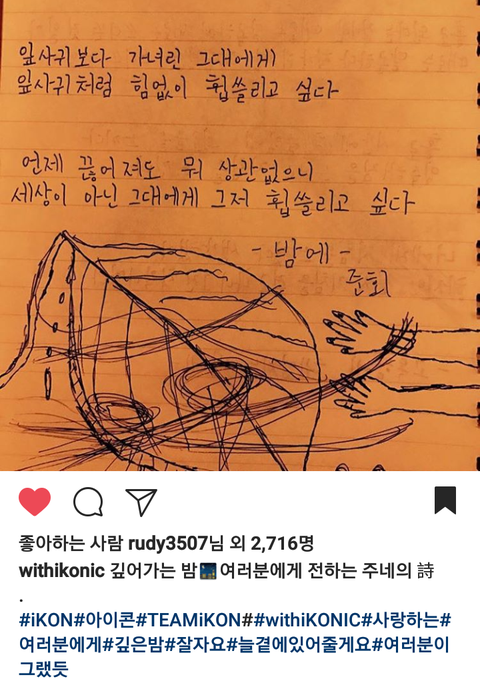 잎사귀보다 가녀린 그대에게
잎사귀처럼 힘없이 휩쓸리고 싶다
언제 끊어져도 뭐 상관없으니
세상이 아닌 그대에게 그저 휩쓸리고 싶다
- 밤에 -
준회
좋아하는 사람 rudy3507님 외 2,716명
withikonic 깊어가는 밤🌃여러분에게 전하는 주네의 詩
.
#iKON#아이콘#TEAMiKON##withiKONIC#사랑하는#
여러분에게#깊은밤#잘자요#늘곁에있어줄게요#여러분이
그랬듯